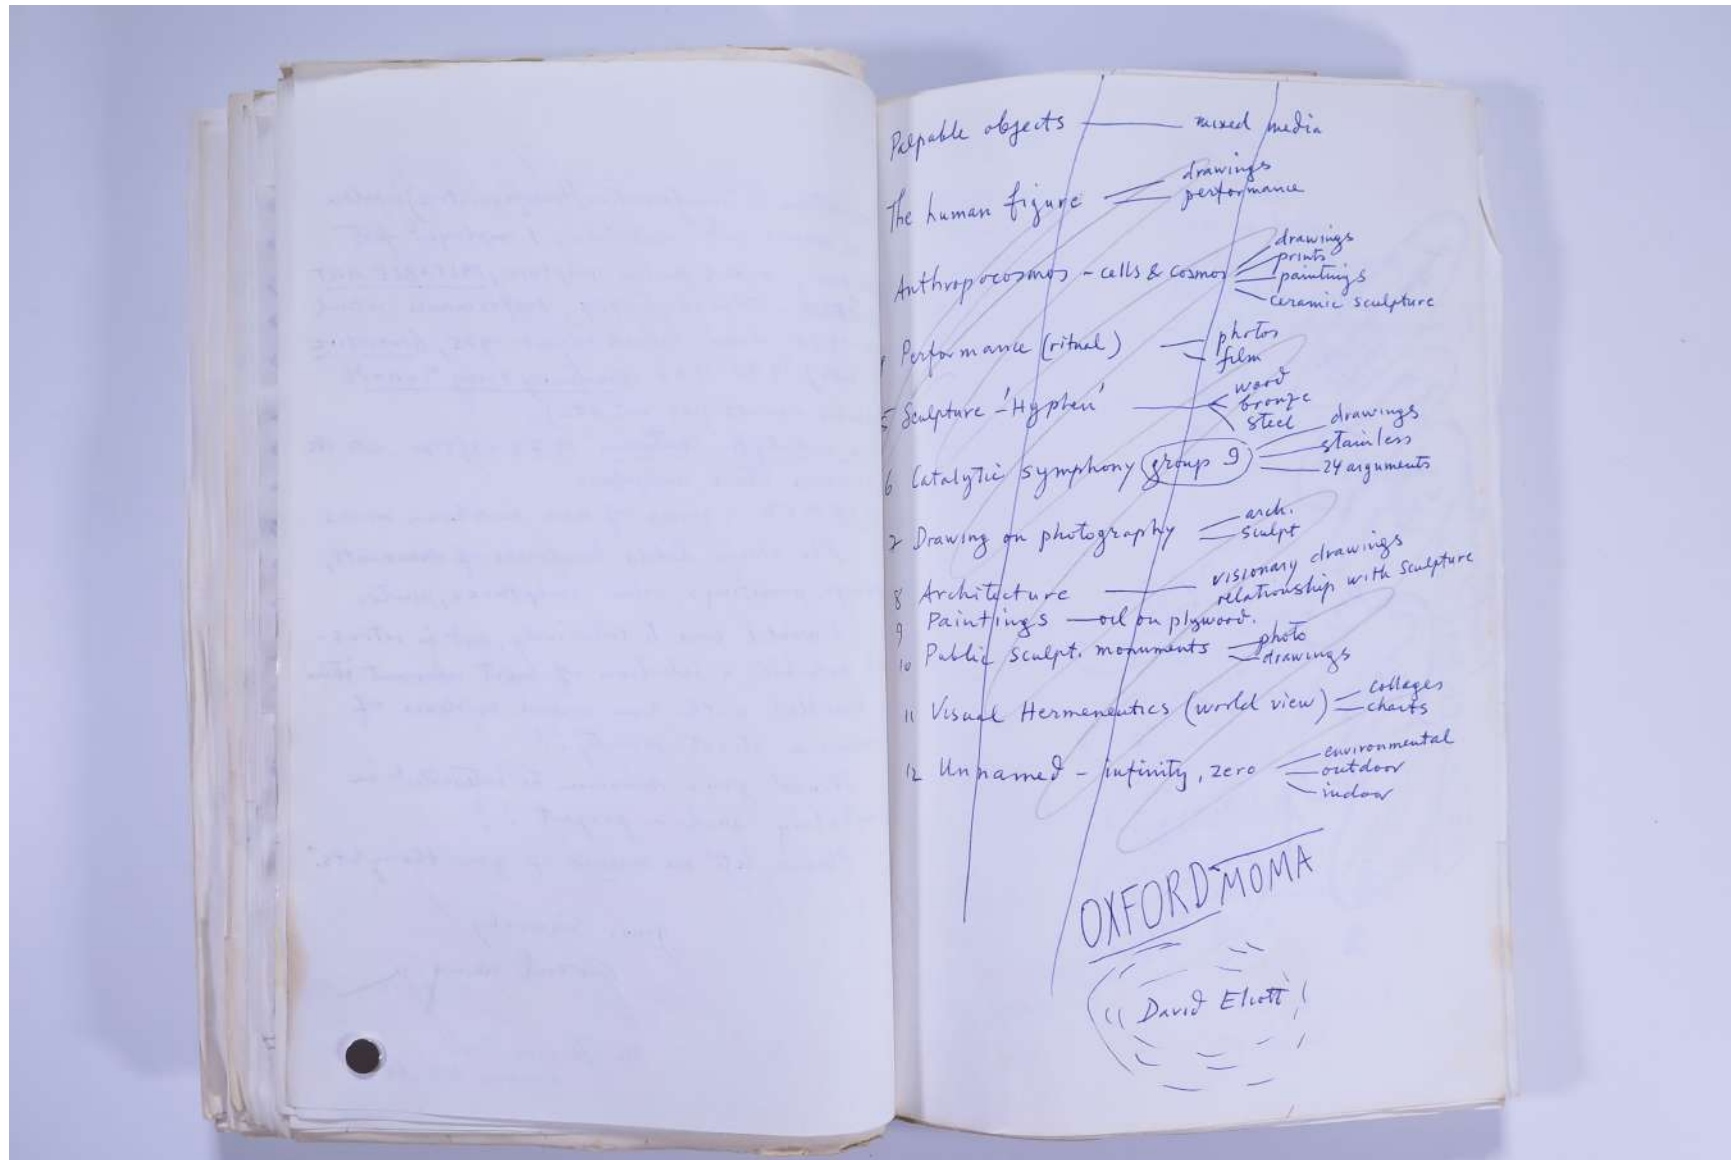 Palpable objects — mixed media
The human figure drawings
performance
Anthropocosmos - cells & cosmos drawings
prints
paintings
ceramic sculpture
Performance (ritual) photos
film
5 Sculpture - 'Hyphen' wood
bronze
steel
6 Catalytic symphony group 9 drawings
stainless
24 arguments
7 Drawing on photography arch.
sculpt
8 Architecture — visionary drawings
relationship with sculpture
9 Paintings — oil on plywood.
10 Public sculpt. monuments photo
drawings
11 Visual Hermeneutics (world view) collages
charts
12 Unnamed - infinity, zero environmental
outdoor
indoor
OXFORD MOMA
David Eliott